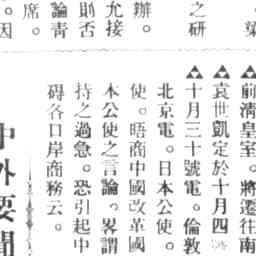 之研
辦。
允接
則否
論靑
席。
因
▲前清皇室。將遷往南
▲袁世凱定於十月四
▲十月三十號電。倫敦
北京電。日本公使。
使。晤商中國改革國
本公使之言論。畧謂
持之過急。恐引起中
碍各口岸商務云。
中外要聞